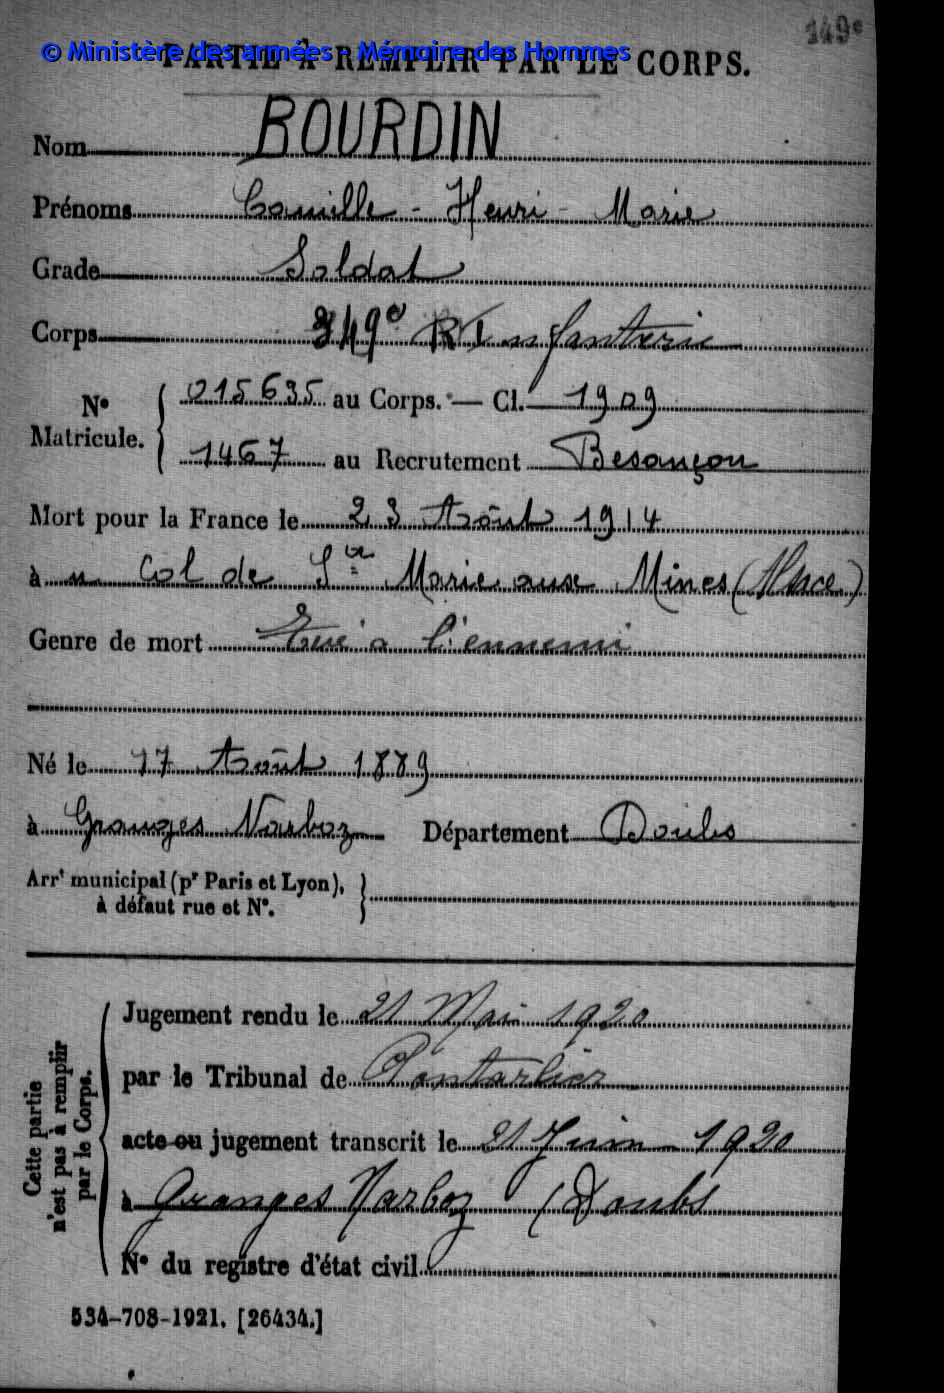 149e
© Ministère des armées - Mémoire des Hommes
PARTIE À REMPLIR PAR LE CORPS.
Nom BOURDIN
Prénoms Camille - Henri - Marie
Grade Soldat
Corps 349e R Infanterie
N° Matricule. { 015635 au Corps. — Cl. 1909
1467 au Recrutement Besançon
Mort pour la France le 23 Août 1914
à u Col de Ste Marie aux Mines (Alsace)
Genre de mort Tué à l'ennemi
Né le 17 Août 1889
à Granges Narboz Département Doubs
Arrt municipal (pr Paris et Lyon), à défaut rue et N°. }
Cette partie n'est pas à remplir par le Corps.
Jugement rendu le 21 Mai 1920
par le Tribunal de Pontarlier
acte ou jugement transcrit le 21 Juin 1920
à Granges Narboz (Doubs
N° du registre d'état civil
534-708-1921. [26434.]